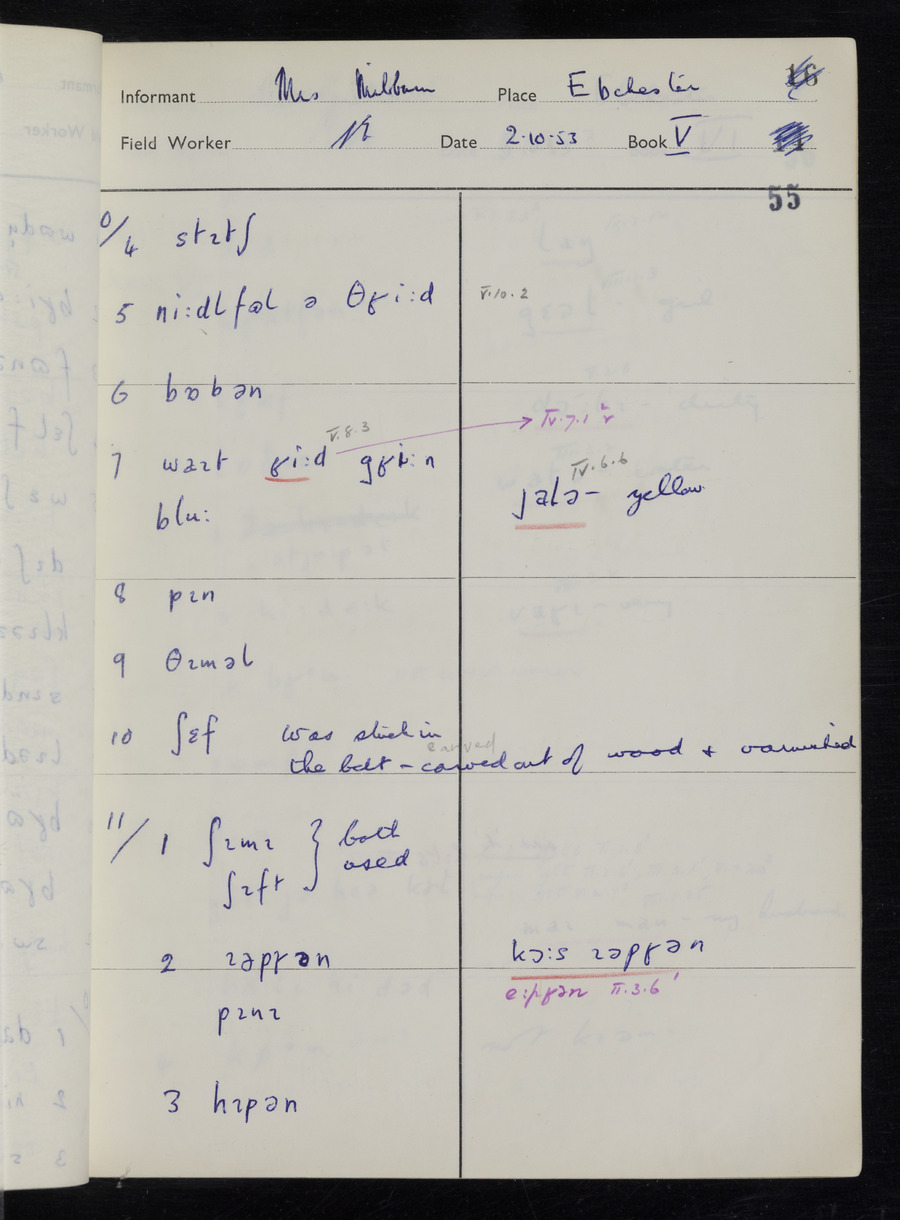 Informant Mrs Milburn Place Ebchester 16
Field Worker Date 2·10·53 Book V
55
0/4 stɪtʃ
5 ni:dlfəl ə θɣi:d V.10.2
6 bɒbən
7 waɪt ɣi:d gɣi:n V.8.3 IV.7.1
blu: jalə- yellow IV.6.6
8 pɪn
9 θɪməl
10 ʃɛf was stuck in
the belt – carved out of wood + varnished
carved
11/1 ʃɪmɪ } both
ʃɪft used
2 ɪəpɣən kɔ:s ɪəpɣən
e:pɣən II.3.6
pɪnɪ
3 hɪpən